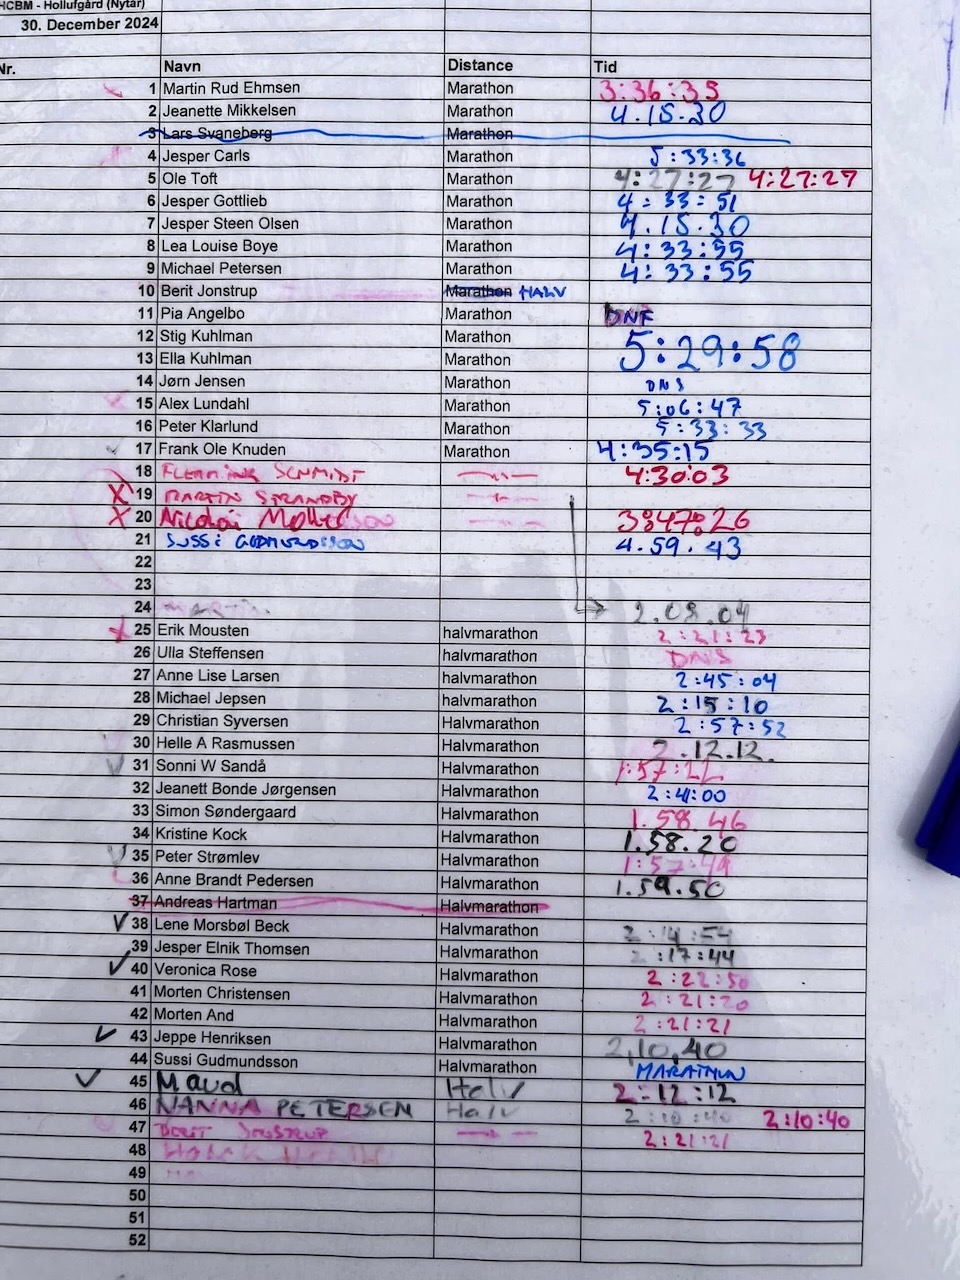 HCBM - Hollufgård (Nytår)
30. December 2024
Nr. Navn Distance Tid
1 Martin Rud Ehmsen Marathon 3:36:35
2 Jeanette Mikkelsen Marathon 4.15.30
3 Lars Svaneberg Marathon
4 Jesper Carls Marathon 5:33:36
5 Ole Toft Marathon 4:27:27 4:27:27
6 Jesper Gottlieb Marathon 4:33:51
7 Jesper Steen Olsen Marathon 4.15.30
8 Lea Louise Boye Marathon 4:33:55
9 Michael Petersen Marathon 4:33:55
10 Berit Jonstrup Marathon HALV
11 Pia Angelbo Marathon DNF
12 Stig Kuhlman Marathon 5:29:58
13 Ella Kuhlman Marathon
14 Jørn Jensen Marathon DNS
15 Alex Lundahl Marathon 5:06:47
16 Peter Klarlund Marathon 5:33:33
17 Frank Ole Knuden Marathon 4:35:15
18 FLEMMING SCHMIDT 4:30:03
19 MARTIN STRANDBY
20 Nicolai 3:47:26
21 SUSSI GUDMUNDSSON 4.59.43
22
23
24 MARTIN 2.08.04
25 Erik Mousten halvmarathon 2:21:23
26 Ulla Steffensen halvmarathon DNS
27 Anne Lise Larsen halvmarathon 2:45:04
28 Michael Jepsen halvmarathon 2:15:10
29 Christian Syversen Halvmarathon 2:57:52
30 Helle A Rasmussen Halvmarathon 2.12.12.
31 Sonni W Sandå Halvmarathon
32 Jeanett Bonde Jørgensen Halvmarathon 2:41:00
33 Simon Søndergaard Halvmarathon 1.58.46
34 Kristine Kock Halvmarathon 1.58.20
35 Peter Strømlev Halvmarathon 1:57:49
36 Anne Brandt Pedersen Halvmarathon 1.59.50
37 Andreas Hartman Halvmarathon
38 Lene Morsbøl Beck Halvmarathon 2:14:54
39 Jesper Elnik Thomsen Halvmarathon 2:17:44
40 Veronica Rose Halvmarathon 2:22:50
41 Morten Christensen Halvmarathon 2:21:20
42 Morten And Halvmarathon 2:21:21
43 Jeppe Henriksen Halvmarathon 2,10,40
44 Sussi Gudmundsson Halvmarathon MARATHON
45 Maud Halv 2:12:12
46 NANNA PETERSEN Halv 2:10:40 2:10:40
47 BERIT JONSTRUP 2:21:21
48
49
50
51
52